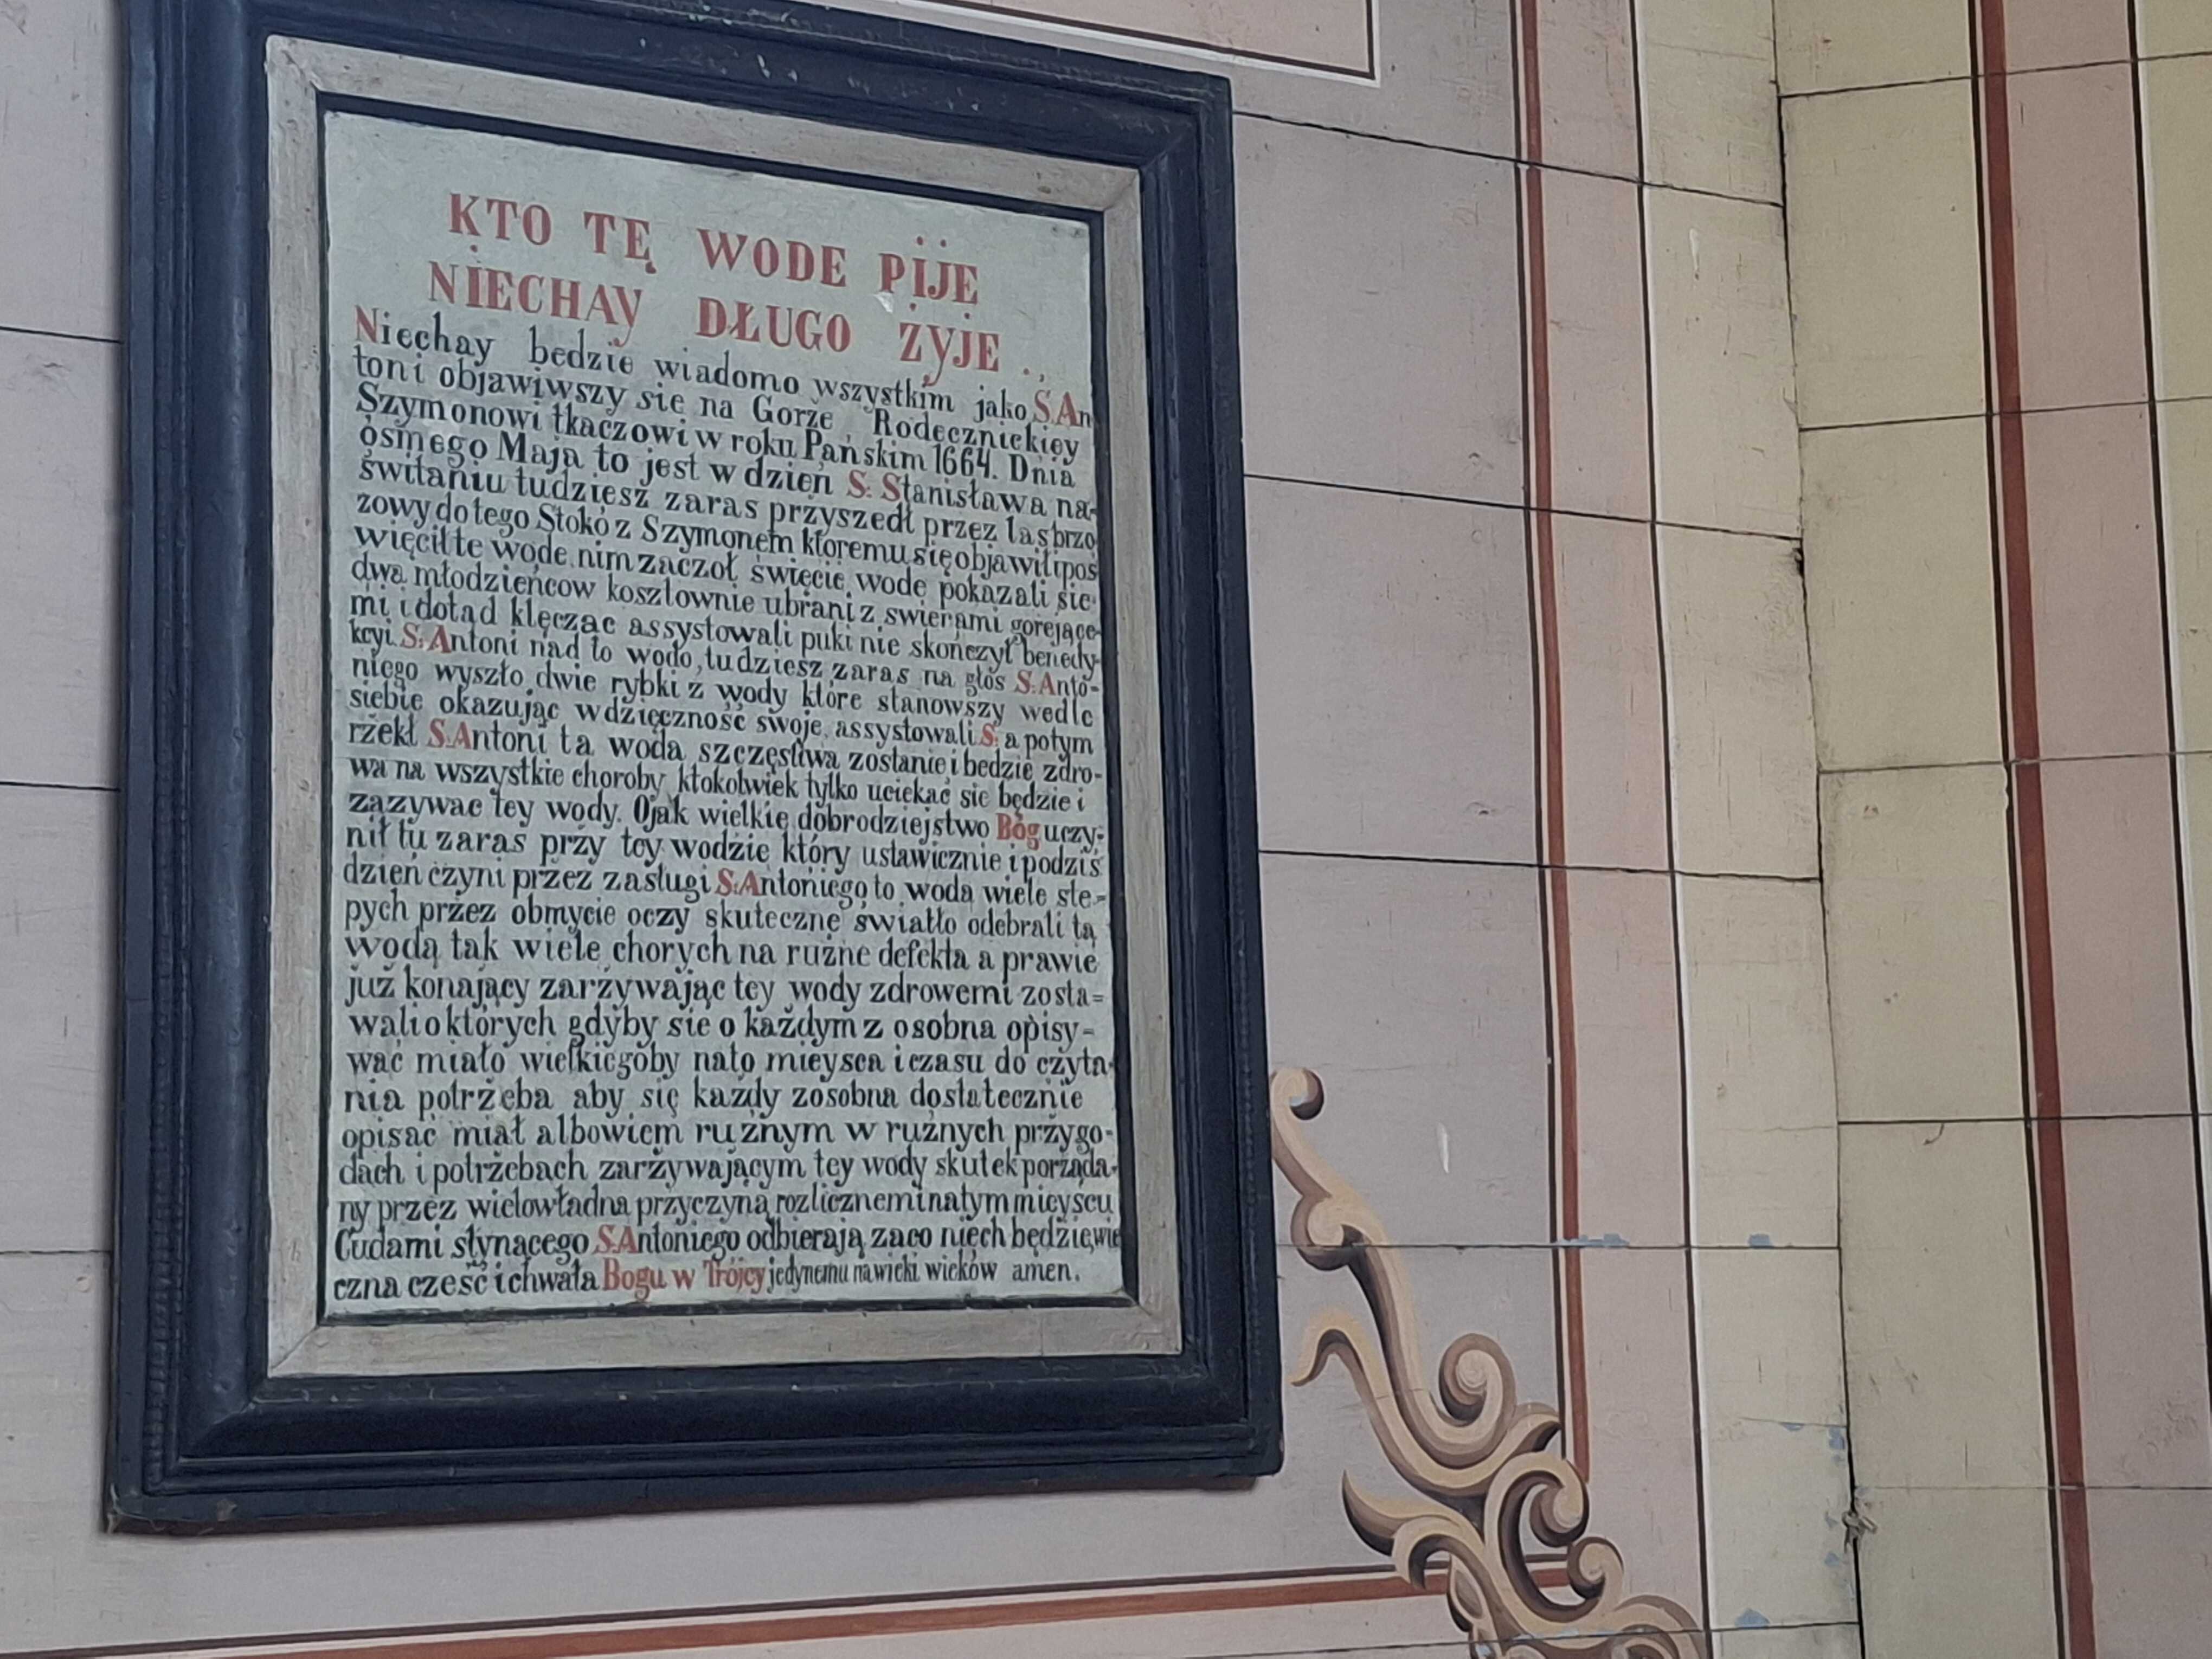 KTO TĘ WODE PIJE
NIECHAY DŁUGO ŻYJE
Niechay będzie wiadomo wszystkim jako S. An
toni objawiwszy się na Gorze Rodecznickiey
Szymonowi tkaczowi w roku Pańskim 1664. Dnia
ósmego Maja to jest w dzień S: Stanisława na-
świtaniu tudziesz zaras przyszedł przez las brzo
zowy do tego Stoko z Szymonem ktoremu się objawił i pos
więcił te wode nim zaczoł święcie wode pokazali sie
dwa młodzieńcow kosztownie ubrani z swierami gorejące-
mi i dotąd klęcząc assystowali puki nie skończył benedy-
kcyi S: Antoni nad to wodo, tudziesz zaras na głos S: Anto-
niego wyszło dwie rybki z wody które stanowszy wedle
siebie okazując wdzięczność swoje assystowali S: a potym
rzekł S. Antoni ta woda szczęsliwa zostanie i bedzie zdro-
wa na wszystkie choroby ktokolwiek tylko uciekać sie będzie i
zazywac tey wody. O jak wielkie dobrodziejstwo Bóg uczy-
nił tu zaras przy tey wodzie który ustawicznie i podziś
dzień czyni przez zasługi S: Antoniego to woda wiele śle-
pych przez obmycie oczy skuteczne światło odebrali tą
wodą tak wiele chorych na rużne defekta a prawie
już konający zarżywając tey wody zdrowemi zosta=
wali o których gdyby sie o każdym z osobna opisy-
wać miało wielkiegoby nato mieysca i czasu do czyta-
nia potrzeba aby się każdy zosobna dostatecznie
opisać miał albowiem rużnym w rużnych przygo-
dach i potrzebach zarżywającym tey wody skutek porząda-
ny przez wielowładna przyczyną rozliczneminatym mieyscu
Cudami słynącego S. Antoniego odbierają zaco niech będzie wie
czna cześć i chwała Bogu w Trójcy jedynemu na wieki wieków amen.